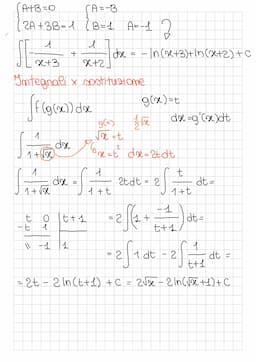 {A+B=0 {A=-B
{2A+3B=1 {B=1 A=-1
∫[-1/(x+3) + 1/(x+2)]dx = -ln(x+3)+ln(x+2)+C
Integrali x sostituzione
∫f(g(x))dx g(x)=t
dx=g'(x)dt 1/2√x
g(x)
√x=t
∫1/(1+√x) dx
x=t² dx=2tdt
∫1/(1+√x) dx = ∫1/(1+t) 2tdt = 2∫t/(1+t) dt=
t 0 | t+1
-t 1 | 1
// -1
=2∫(1+ -1/(t+1))dt=
=2∫1dt-2∫1/(t+1) dt=
=2t-2ln(t+1)+C = 2√x-2ln(√x+1)+C